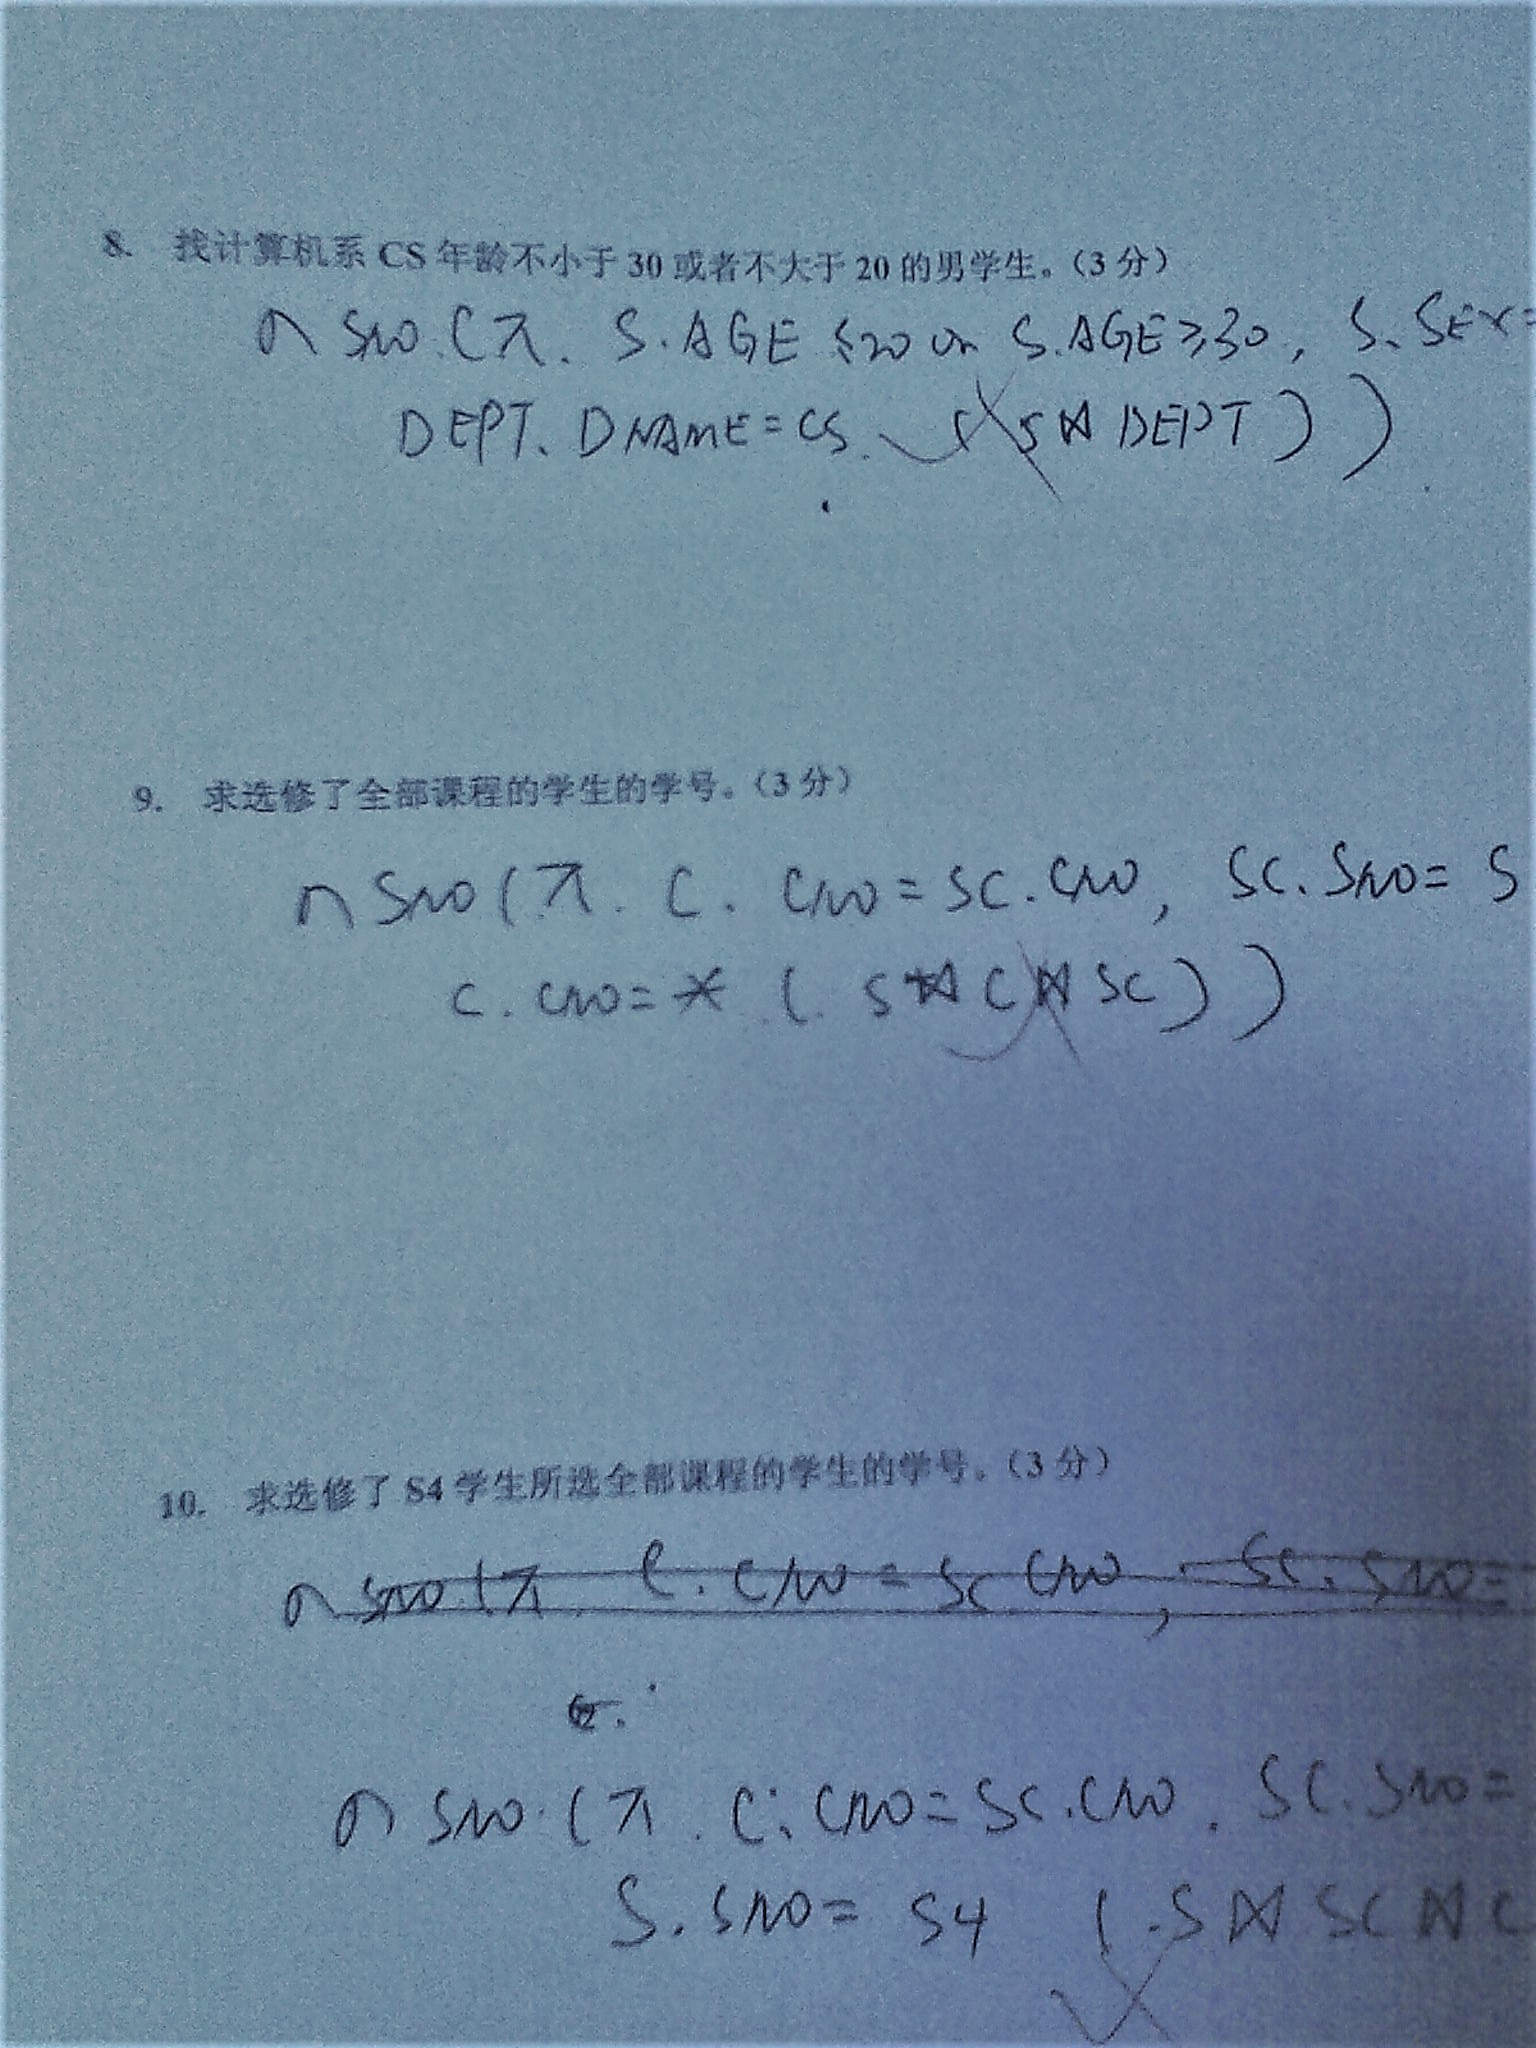 8. 找计算机系 CS 年龄不小于 30 或者不大于 20 的男学生。(3 分)
σ SNO (π. S.AGE ≤20 or S.AGE≥30, S.SEX=
DEPT. DNAME=CS. ( S⋈ DEPT ) )
9. 求选修了全部课程的学生的学号。(3 分)
σ SNO (π. C. CNO = SC.CNO, SC.SNO= S
C. CNO= * ( S ⋈ C ⋈ SC ) )
10. 求选修了 S4 学生所选全部课程的学生的学号。(3 分)
σ SNO (π. C. CNO = SC CNO, SC. SNO=
σ SNO (π. C. CNO=SC.CNO. SC.SNO=
S. SNO= S4 ( S ⋈ SC ⋈ C